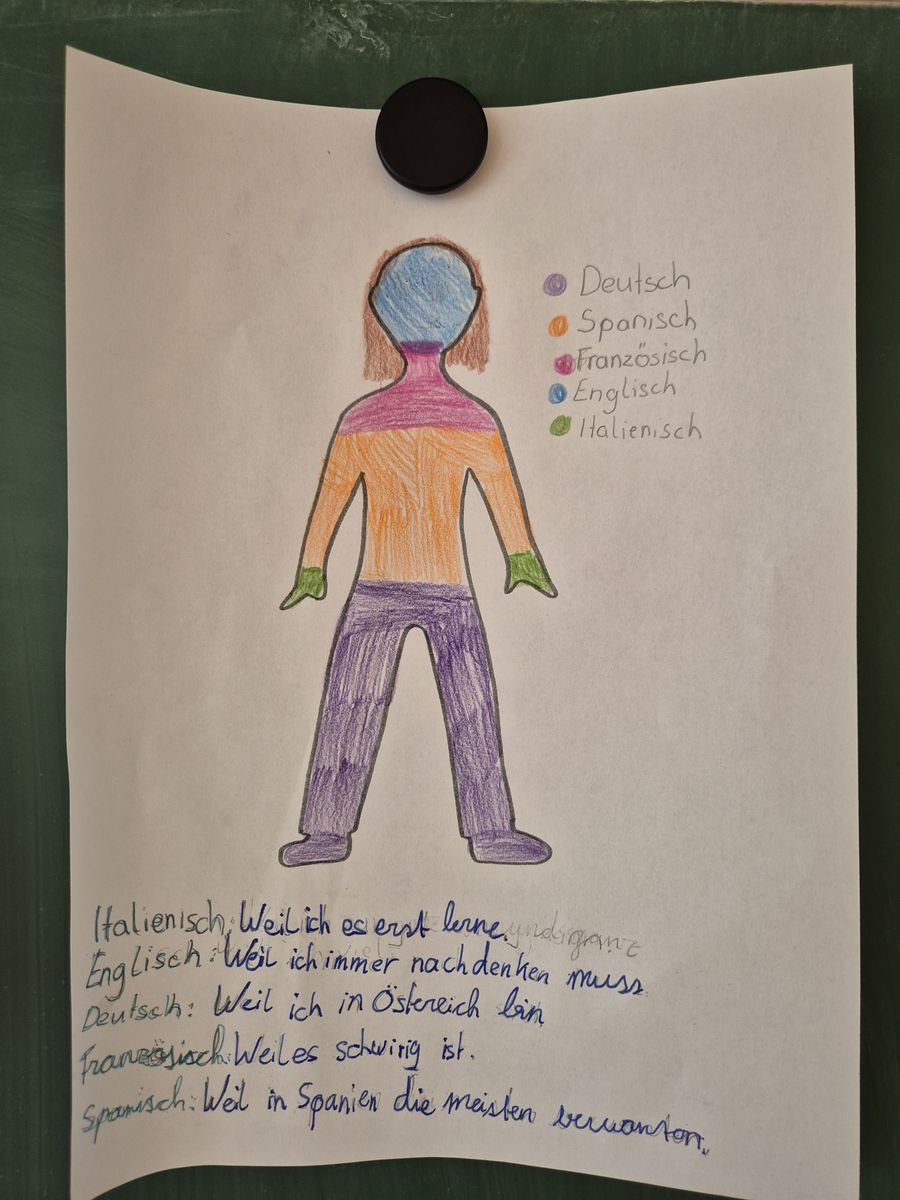 Deutsch
Spanisch
Französisch
Englisch
Italienisch
Italienisch: Weil ich es erst lerne.
Englisch: Weil ich immer nachdenken muss
Deutsch: Weil ich in Östereich bin
Französisch: Weil es schwirig ist.
Spanisch: Weil in Spanien die meisten verwanten.